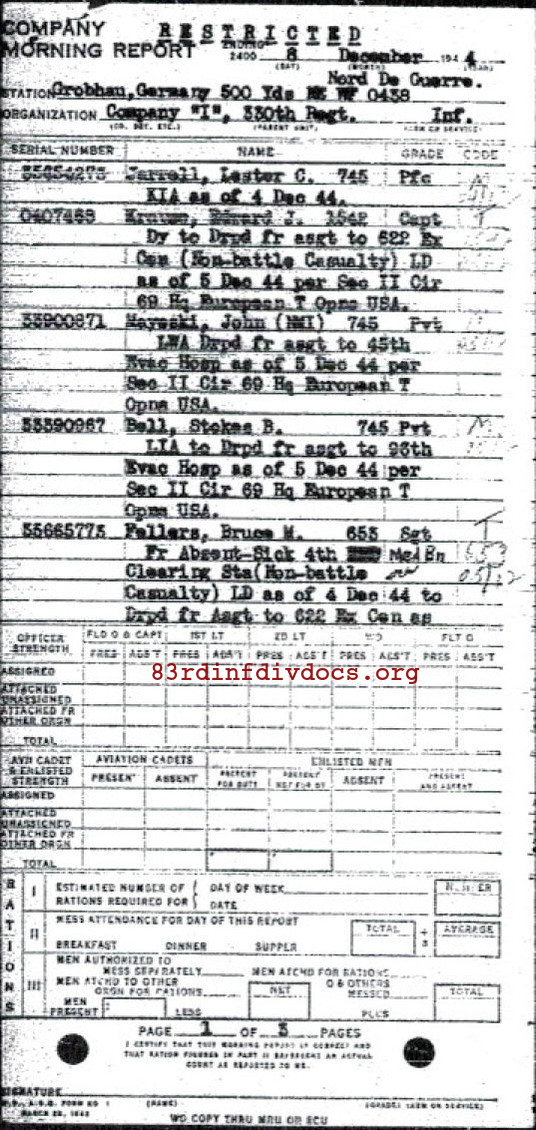 COMPANY
MORNING REPORT
RESTRICTED
ENDING
2400 8 December 1944
(DAY) (MONTH) (YEAR)
Nord De Guerre.
STATION Grobhau, Germany 500 Yds NE WF 0438
ORGANIZATION Company "I", 330th Regt. Inf.
(CO. DET. ETC.) (PARENT UNIT) (ARM OR SERVICE)
SERIAL NUMBER NAME GRADE CODE
35654273 Jarrell, Lester C. 745 Pfc
KIA as of 4 Dec 44.
0407468 Krause, Edward J. 1542 Capt
Dy to Drpd fr asgt to 622 Ex
Cen (Non-battle Casualty) LD
as of 5 Dec 44 per Sec II Cir
69 Hq European T Opns USA.
33900871 John (NMI) 745 Pvt
LWA Drpd fr asgt to 45th
Evac Hosp as of 5 Dec 44 per
Sec II Cir 69 Hq European T
Opns USA.
33390967 Bell, Stokes B. 745 Pvt
LIA to Drpd fr asgt to 96th
Evac Hosp as of 5 Dec 44 per
Sec II Cir 69 Hq European T
Opns USA.
35665773 Fellers, Bruce M. 653 Sgt
Fr Absent-Sick 4th Med Bn
Clearing Sta (Non-battle
Casualty) LD as of 4 Dec 44 to
Drpd fr Asgt to 622 Ex Cen as
OFFICER STRENGTH FLD O & CAPT 1ST LT 2D LT WO FLT O
PRES ABS'T PRES ABS'T PRES ABS'T PRES ABS'T PRES ABS'T
83rdinfdivdocs.org
ASSIGNED
ATTACHED UNASSIGNED
ATTACHED FR OTHER ORGN
TOTAL
AVN CADET & ENLISTED STRENGTH AVIATION CADETS ENLISTED MEN
PRESENT ABSENT PRESENT FOR DUTY PRESENT NOT FOR DY ABSENT PRESENT AND ABSENT
ASSIGNED
ATTACHED UNASSIGNED
ATTACHED FR OTHER ORGN
TOTAL
RATIONS
I ESTIMATED NUMBER OF RATIONS REQUIRED FOR { DAY OF WEEK NUMBER
DATE
II MESS ATTENDANCE FOR DAY OF THIS REPORT TOTAL ÷ 3 AVERAGE
BREAKFAST DINNER SUPPER
III MEN AUTHORIZED TO MESS SEPARATELY MEN ATCHD FOR RATIONS
MEN ATCHD TO OTHER ORGN FOR RATIONS NET O & OTHERS MESSED TOTAL
MEN PRESENT LESS PLUS
PAGE 1 OF 3 PAGES
I CERTIFY THAT THIS MORNING REPORT IS CORRECT AND
THAT RATION FIGURES IN PART II REPRESENT AN ACTUAL
COUNT AS REPORTED TO ME.
SIGNATURE
W.D., A.G.O. FORM NO 1 (NAME) (GRADE) (ARM OR SERVICE)
MARCH 22, 1943
WD COPY THRU MRU OR SCU